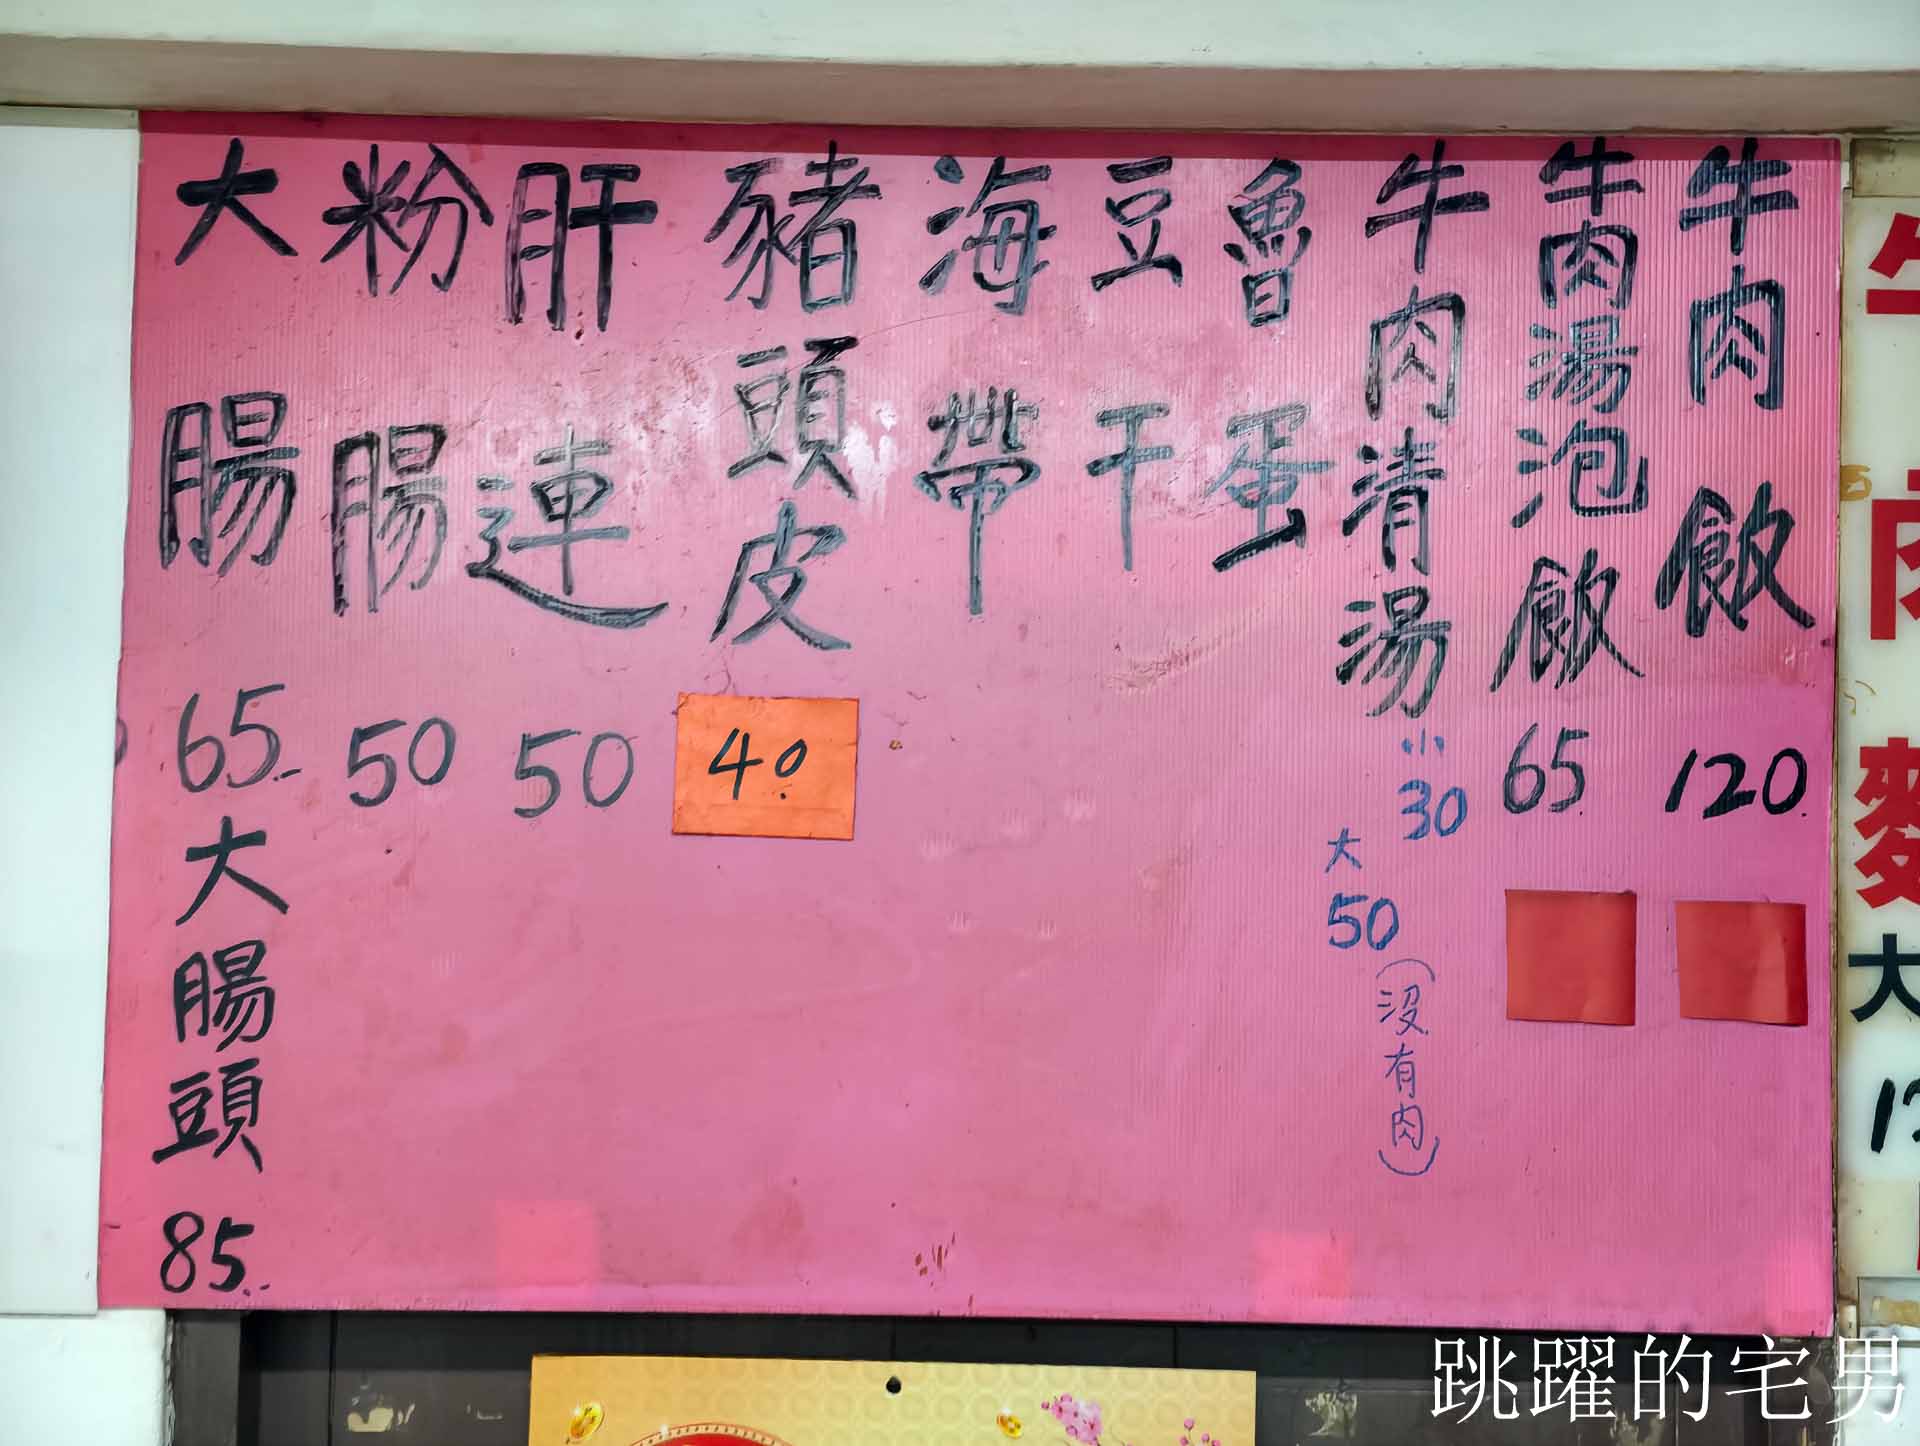 牛肉飯 120
牛肉湯泡飯 65
牛肉清湯 小 30
大 50 (沒有肉)
魯蛋
豆干
海帶
豬頭皮 40
肝連 50
粉腸 50
大腸 65
大腸頭 85
牛肉麵 大
跳躍的宅男